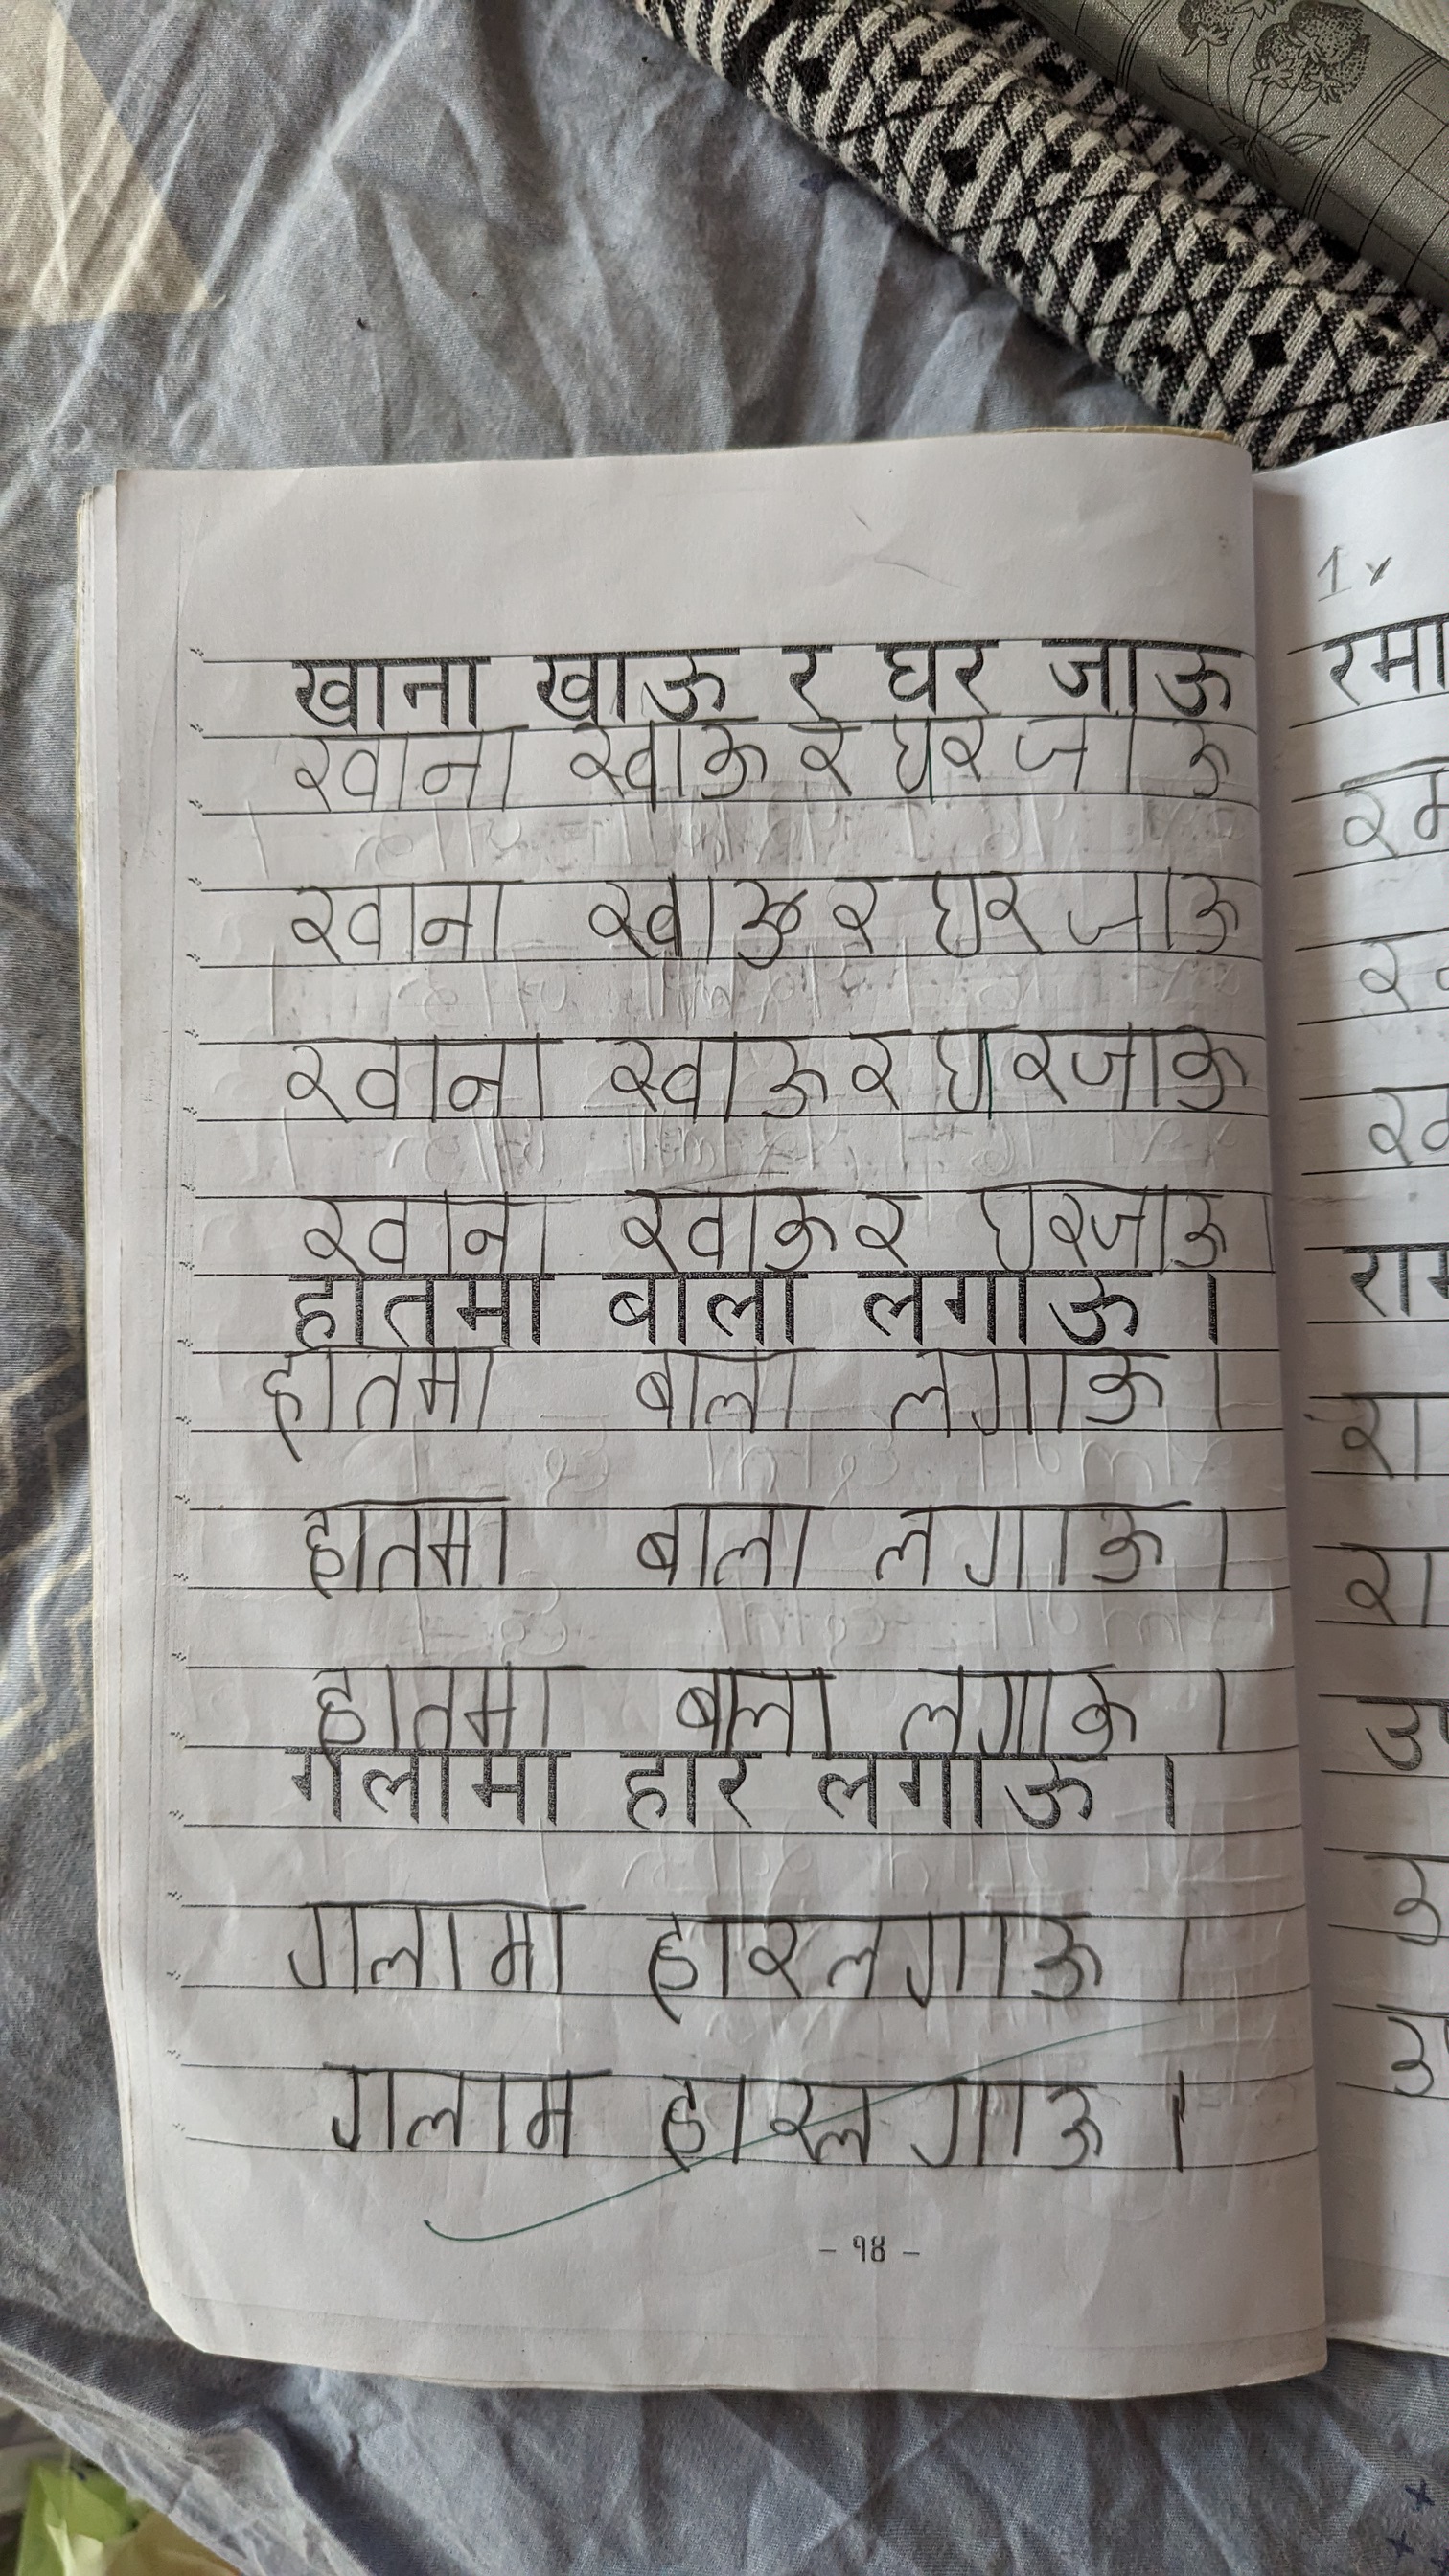 खाना खाऊ र घर जाऊ
खाना खाऊ र घर जाऊ
खाना खाऊ र घर जाऊ
खाना खाऊ र घर जाऊ
खाना खाऊ र घर जाऊ ।
हातमा बाला लगाऊ ।
हातमा बाला लगाऊ ।
हातमा बाला लगाऊ ।
हातमा बाला लगाऊ ।
गलामा हार लगाऊ ।
गलामा हार लगाऊ ।
गलाम हार लगाऊ ।
- १४ -
1x
रमा
रम
रा
रा